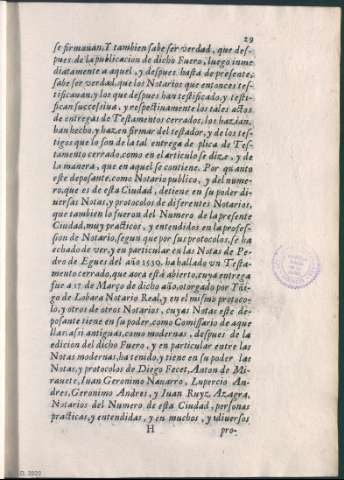 29
se firmauan. Y tambien sabe ser verdad, que des-
pues de la publicacion de dicho Fuero, luego inme
diatamente a aquel, y despues hasta de presente,
sabe ser verdad, que los Notarios que entonces tes-
tificauan, y los que despues han testificado, y testi-
fican successiua, y respectiuamente los tales actos
de entregas de Testamentos cerrados, los hazian,
han hecho, y hazen firmar del testador, y de los tes-
tigos que lo son de la tal entrega de plica de Tes-
tamento cerrado, como en el articulo se dize, y de
la manera, que en aquel se contiene. Por quanto
este deposante, como Notario publico, y del nume-
ro, que es de esta Ciudad, detiene en su poder di-
uersas Notas, y protocolos de diferentes Notarios,
que tambien lo fueron del Numero de la presente
Ciudad, muy practicos, y entendidos en la profes-
sion de Notario, segun que por sus protocolos, se ha
echado de ver, y en particular en las Notas de Pe-
dro de Egues del año 1530. ha hallado vn Testa-
mento cerrado, que aora està abierto, cuya entrega
fue a 17. de Março de dicho año, otorgado por Yñi-
go de Lobera Notario Real, y en el mismo protoco-
lo, y otros de otros Notarios, cuyas Notas este de-
posante tiene en su poder, como Comissario de aque
llas: assi antiguas, como modernas, despues de la
edicion del dicho Fuero, y en particular entre las
Notas modernas, ha tenido, y tiene en su poder las
Notas, y protocolos de Diego Fecet, Anton de Mi-
rauete, Iuan Geronimo Nauarro, Lupercio An-
dres, Geronimo Andres, y Iuan Ruyz Azagra,
Notarios del Numero de esta Ciudad, personas
practicas, y entendidas, y en muchos, y diuersos
H pro-